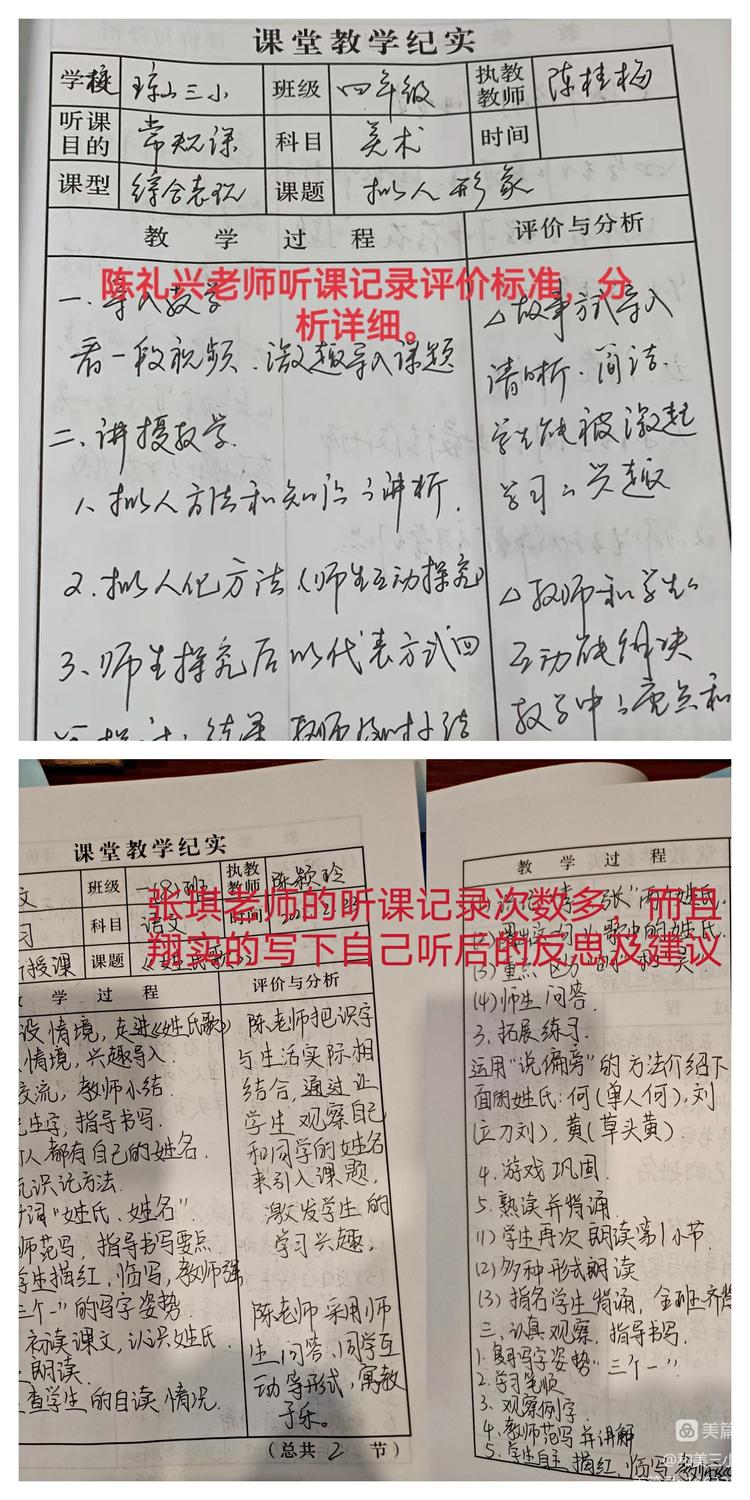 课堂教学纪实
学校 琼山三小 班级 四年级 执教教师 陈桂梅
听课目的 常规课 科目 美术 时间
课型 综合表现 课题 拟人形象
教 学 过 程 评价与分析
陈礼兴老师听课记录评价标准，分
析详细。
一、导入教学
看一段视频、激趣导入课题
二、讲授教学
1、拟人方法和知识的讲析.
2、拟人化方法(师生互动探究)
3、师生探究后以代表方式回
△故事式导入
清晰、简洁、
学生能被激起
学习的兴趣
△教师和学生的
互动能解决
教学中的重点和
课堂教学纪实
文 班级 一(8)班 执教教师 陈颖玲
习 科目 语文 时间
授课 课题 《姓氏歌》
学 过 程 评价与分析
张琪老师的听课记录次数多，而且
翔实的写下自己听后的反思及建议
设情境，走进《姓氏歌》
情境，兴趣导入.
交流，教师小结.
生字，指导书写.
人都有自己的姓名.
识记方法.
词“姓氏、姓名”.
师范写，指导书写要点.
学生描红，临写，教师强
三个一”的写字姿势.
初读课文，认识姓氏.
朗读.
查学生的自读情况.
陈老师把识字
与生活实际相
结合，通过让
学生观察自己
和同学的姓名
来引入课题，
激发学生的
学习兴趣。
陈老师采用师
生问答、同学互
动等形式，寓教
于乐。
(总共 2 节)
教 学 过 程
(4)师生问答.
3、拓展练习.
运用“说偏旁”的方法介绍下
面的姓氏：何(单人何)，刘
(立刀刘)，黄(草头黄)
4、游戏巩固.
5、熟读并背诵.
(1)学生再次朗读第1小节.
(2)多种形式朗读
(3)指名学生背诵，全班齐背
三、认真观察，指导书写.
1、复习写字姿势“三个一”.
2、学习笔顺
3、观察例字
4、教师范写并讲解
5、学生自主描红，临写
美篇